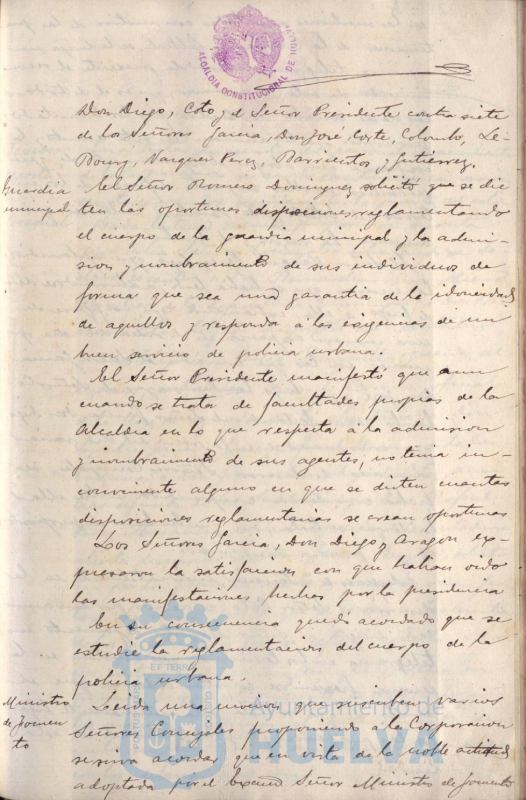 ALCALDIA CONSTITUCIONAL DE HUELVA
Don Diego, Coto y el Señor Presidente contra siete
de los Señores Garcia, Don José Corte, Colombo, Le-
Bourg, Vazquez Perez, Barrientos y Gutiérrez.
Guardia
municipal
El Señor Romero Dominguez solicitó que se dic
ten las oportunas disposiciones reglamentando
el cuerpo de la guardia municipal y la admi-
sion y nombramiento de sus individuos de
forma que sea una garantia de la idoneidad
de aquellos y responda á las exigencias de un
buen servicio de policia urbana.
El Señor Presidente manifestó que aun
cuando se trata de facultades propias de la
Alcaldia en lo que respecta á la admision
y nombramiento de sus agentes, no tenia in-
conveniente alguno en que se dicten cuantas
disposiciones reglamentarias se crean oportunas
Los Señores Garcia, Don Diego y Aragon ex-
presaron la satisfaccion con que habian oido
las manifestaciones hechas por la presidencia
En su consecuencia quedó acordado que se
estudie la reglamentacion del cuerpo de la
policia urbana.
Ministro
de Fomen
to
Leida una mocion que suscriben varios
Señores Concejales proponiendo á la Corporacion
se sirva acordar que en vista de la noble actitud
adoptada por el Excmo Señor Ministro de Fomento
Ayuntamiento de
HUELVA